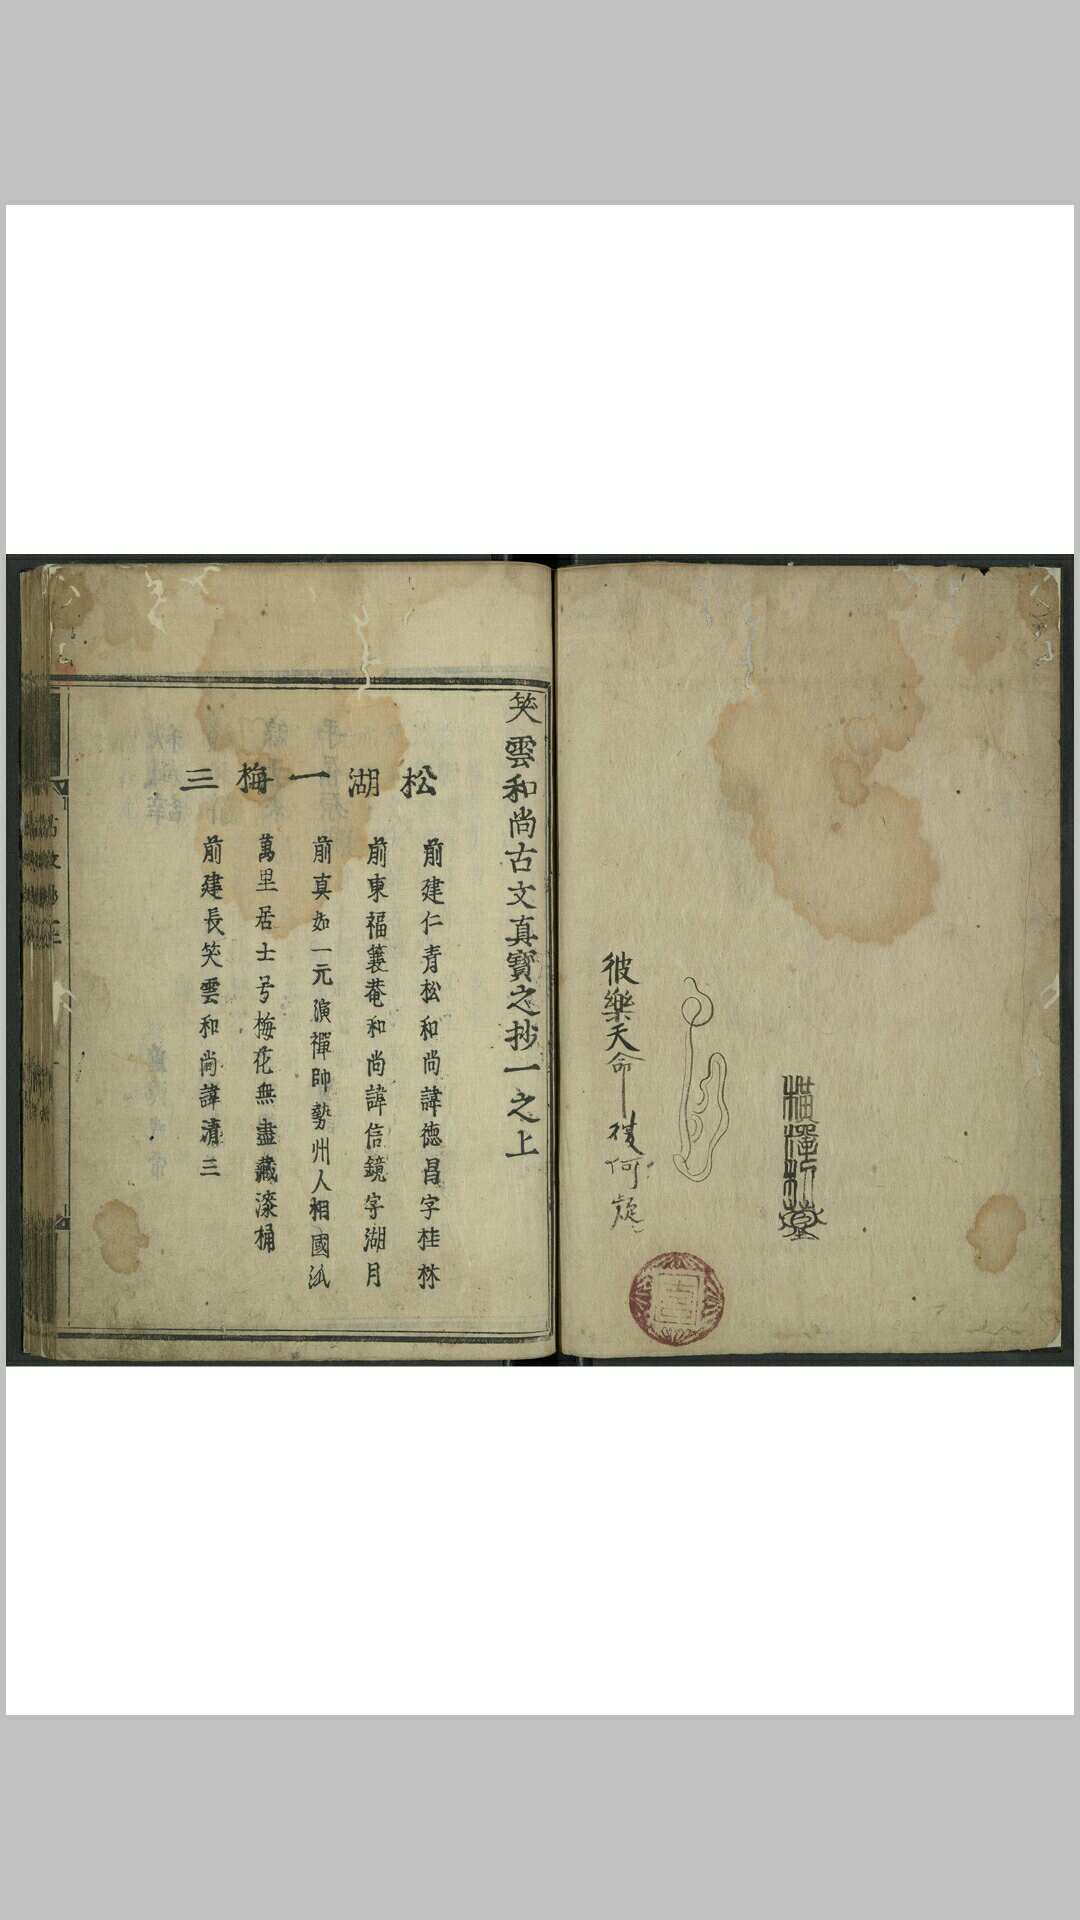 彼樂天命復何疑
笑雲和尚古文真寶之抄一之上
松 前建仁青松和尚諱德昌字桂林
湖 前東福蓑菴和尚諱信鏡字湖月
一 前真如一元演禪師勢州人相國派
梅 萬里居士号梅花無盡藏漆桶
三 前建長笑雲和尚諱清三